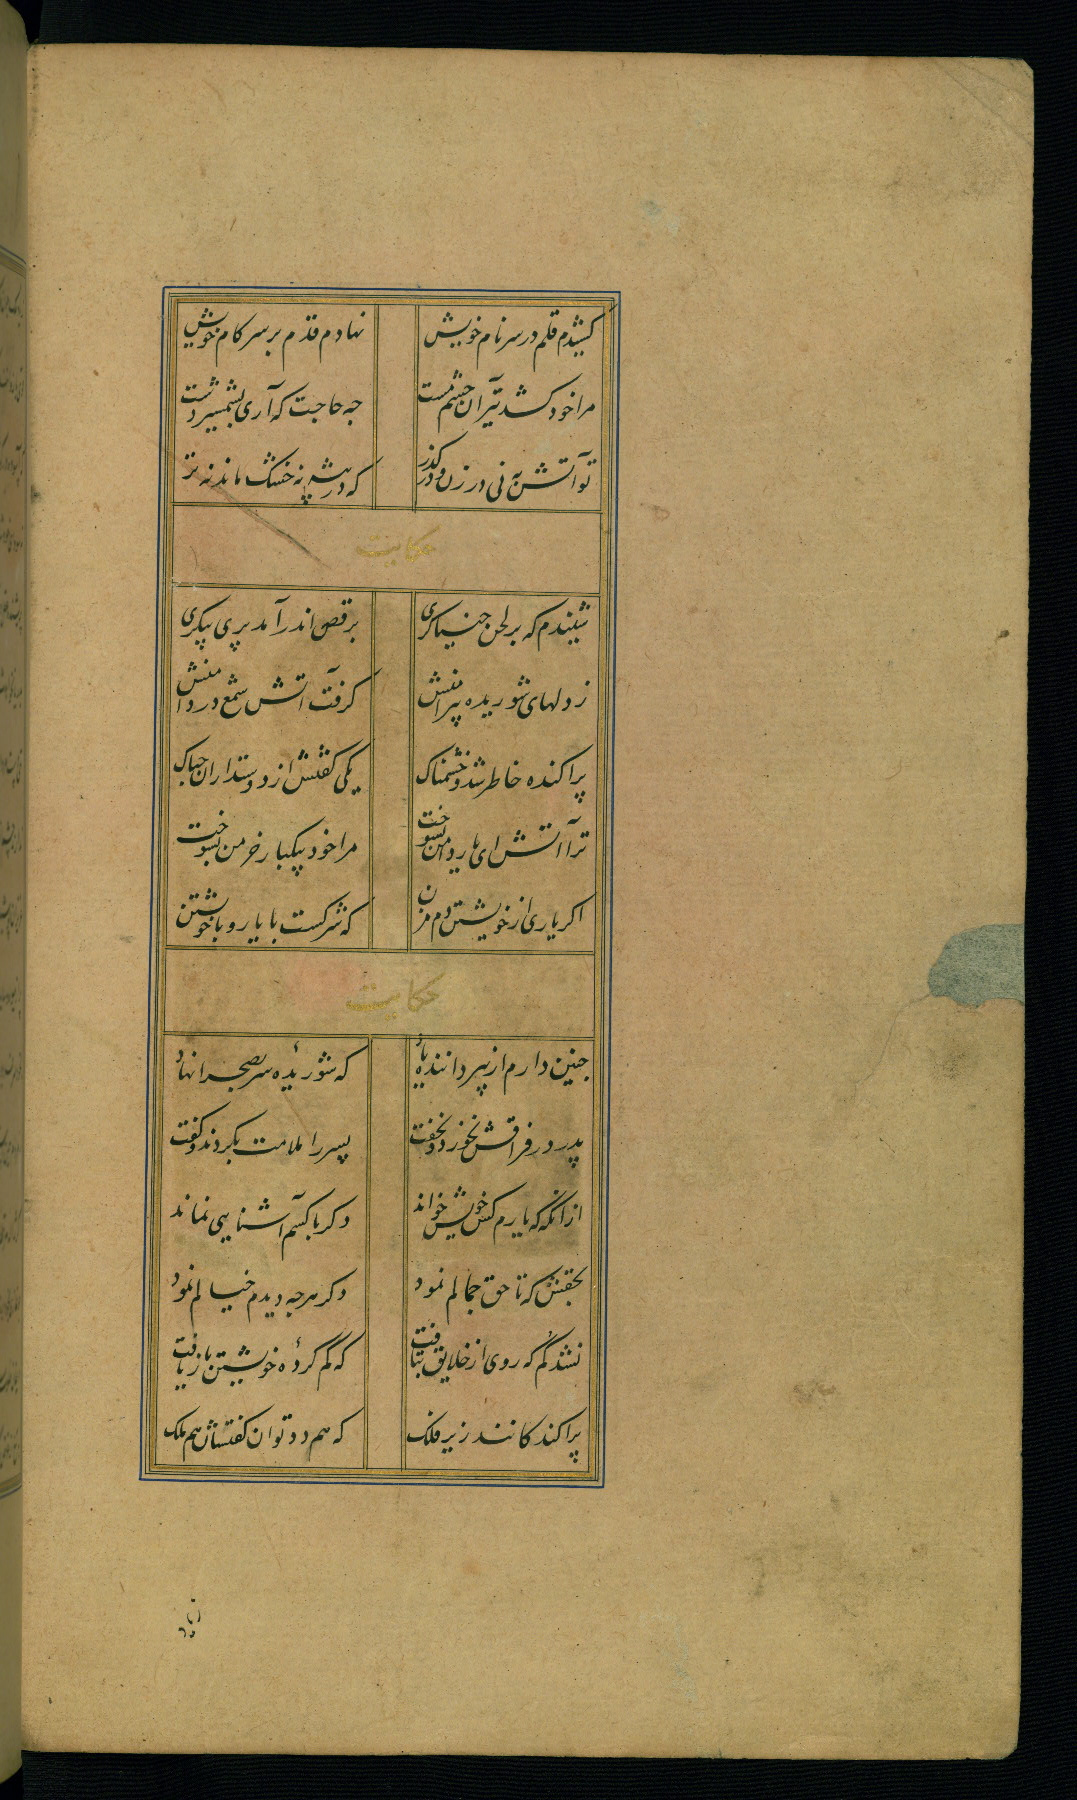 کشیدم قلم در سر نام خویش نهادم قدم بر سر کام خویش
مرا خود کشد تیر آن چشم مست چه حاجت که آری بشمشیر دست
تو آتش به نی در زن و درگذر که در بیشه نه خشک ماند نه تر
حکایت
شنیدم که بر لحن خنیاگری برقص اندر آمد پری پیکری
ز دلهای شوریده پیرامنش گرفت آتش شمع در دامنش
پراکنده خاطر شد و خشمناک یکی گفتش از دوستداران چه باک
ترا آتش ای یار دامن بسوخت مرا خود بیکبار خرمن بسوخت
اگر یاری از خویشتن دم مزن که شرکست با یار و با خویشتن
حکایت
چنین دارم از پیر داننده یاد که شوریده سر بصحرا نهاد
پدر در فراقش نخورد و نخفت پسر را ملامت بکردند و گفت
از انگه که یارم کس خویش خواند دگر با کسم آشنایی نماند
بحقش که تا حق جمالم نمود دگر هر چه دیدم خیالم نمود
نشد گم که روی از خلایق بتافت که گم کرده خویشتن باز یافت
پراکندکانند زیر فلک که هم دد توان گفتشان هم ملک